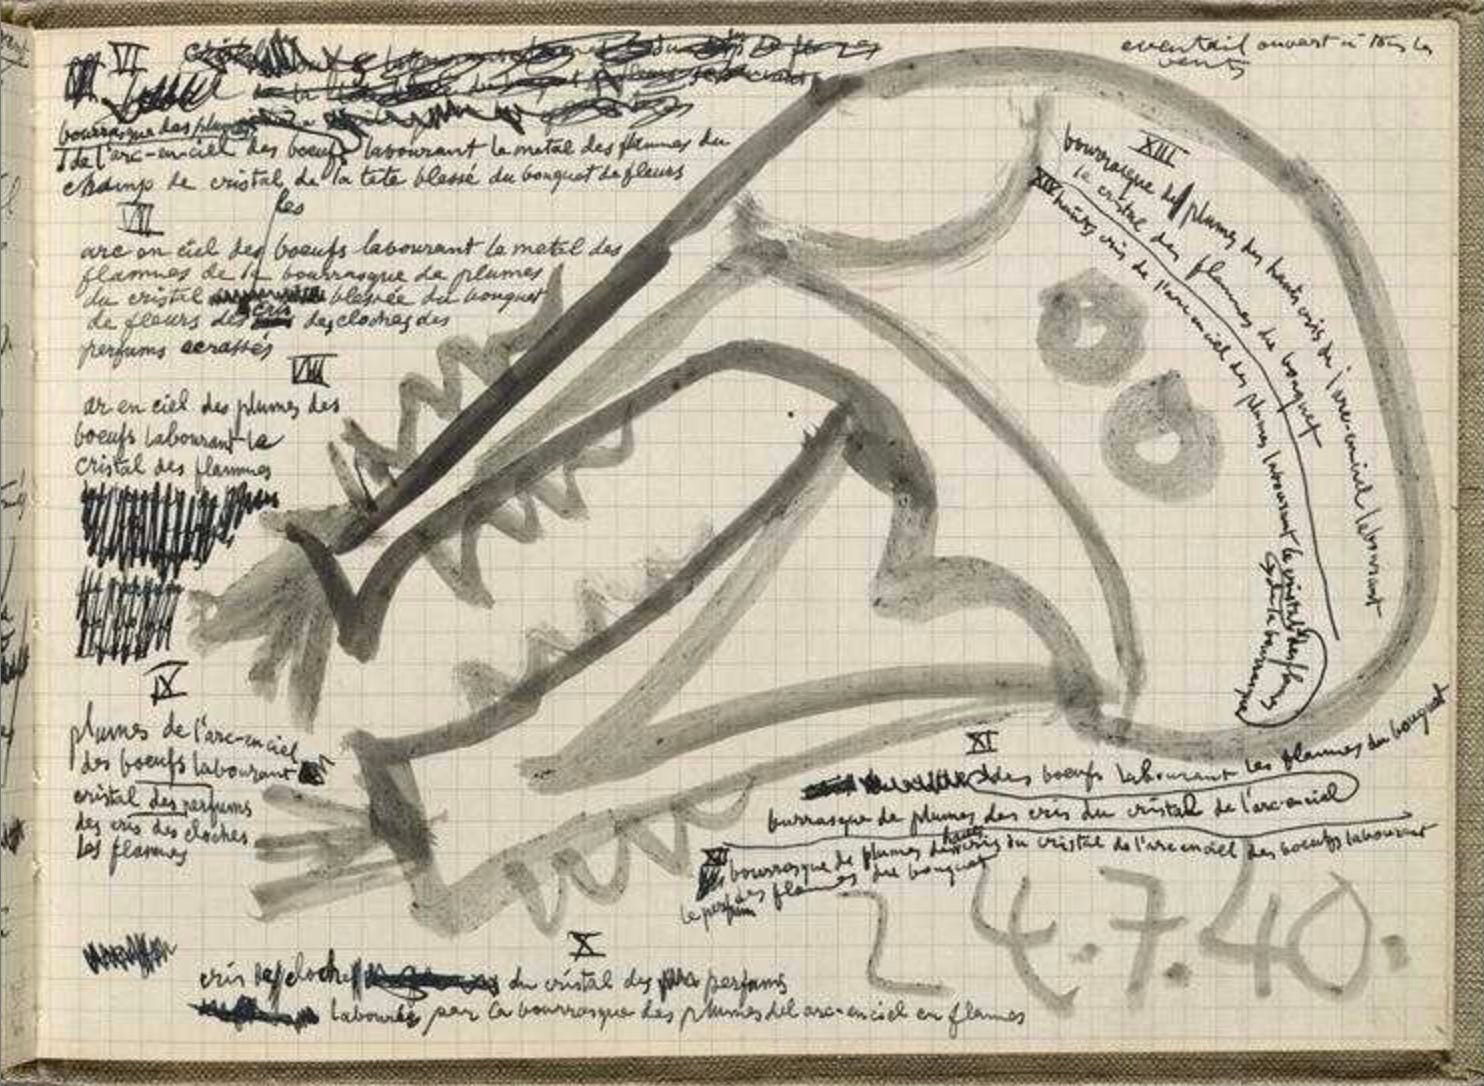 eventail ouvert à tous les
vents
VI
bourrasque des plumes
de l'arc-en-ciel des boeufs labourant le metal des flammes du
champ de cristal de la tete blessé du bouquet de fleurs
VII
les
arc en ciel des boeufs labourant le metal des
flammes de la bourrasque de plumes
du cristal blessée du bouquet
de fleurs des cris des cloches des
perfums ecrassés
VIII
ar en ciel des plumes des
boeufs labourant le
cristal des flammes
IX
plumes de l'arc-en ciel
des boeufs labourant
cristal des perfums
des cris des cloches
les flammes
X
cris des cloches du cristal des perfums
labourés par la bourrasque des plumes del arc-en ciel en flames
XI
des boeufs labourant les flammes du bouquet
burrasque de plumes des cris du cristal de l'arc-en ciel
XII
bourrasque de plumes des hauts cris du cristal de l'arc en ciel des boeufs labourant
des flammes du bouquet
le perfum
XIII
bourrasque des plumes des hauts cris de l'arc-en-ciel labourant
le cristal des flammes du bouquet
XIV
hauts cris de l'arc en ciel des plumes labourant le cristal des flames
de la bourrasque
24.7.40.